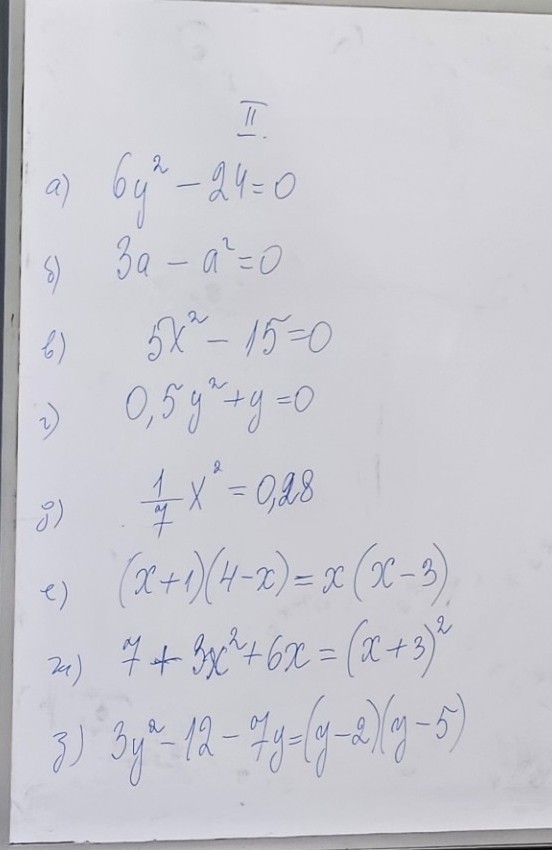 II
а) 6y² − 24 = 0
б) 3a − a² = 0
в) 5x² − 15 = 0
г) 0,5y² + y = 0
д) 1/7 x² = 0,28
е) (x+1)(4−x) = x(x−3)
ж) 7 + 3x² + 6x = (x+3)²
з) 3y² − 12 − 7y = (y−2)(y−5)